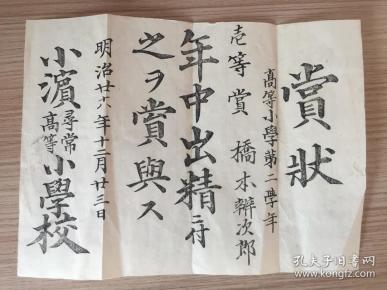 賞狀
高等小學第二學年
壱等賞 橋本辨次郎
年中出精ニ付
之ヲ賞與ス
明治廿六年十二月廿三日
小濵尋常高等小學校
孔夫子旧书网